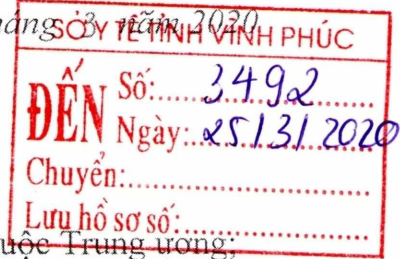 háng 3 năm 2020
SỞ Y TẾ TỈNH VĨNH PHÚC
ĐẾN
Số: 3492
Ngày: 25/3/2020
Chuyển:
Lưu hồ sơ số:
uộc Trung ương;